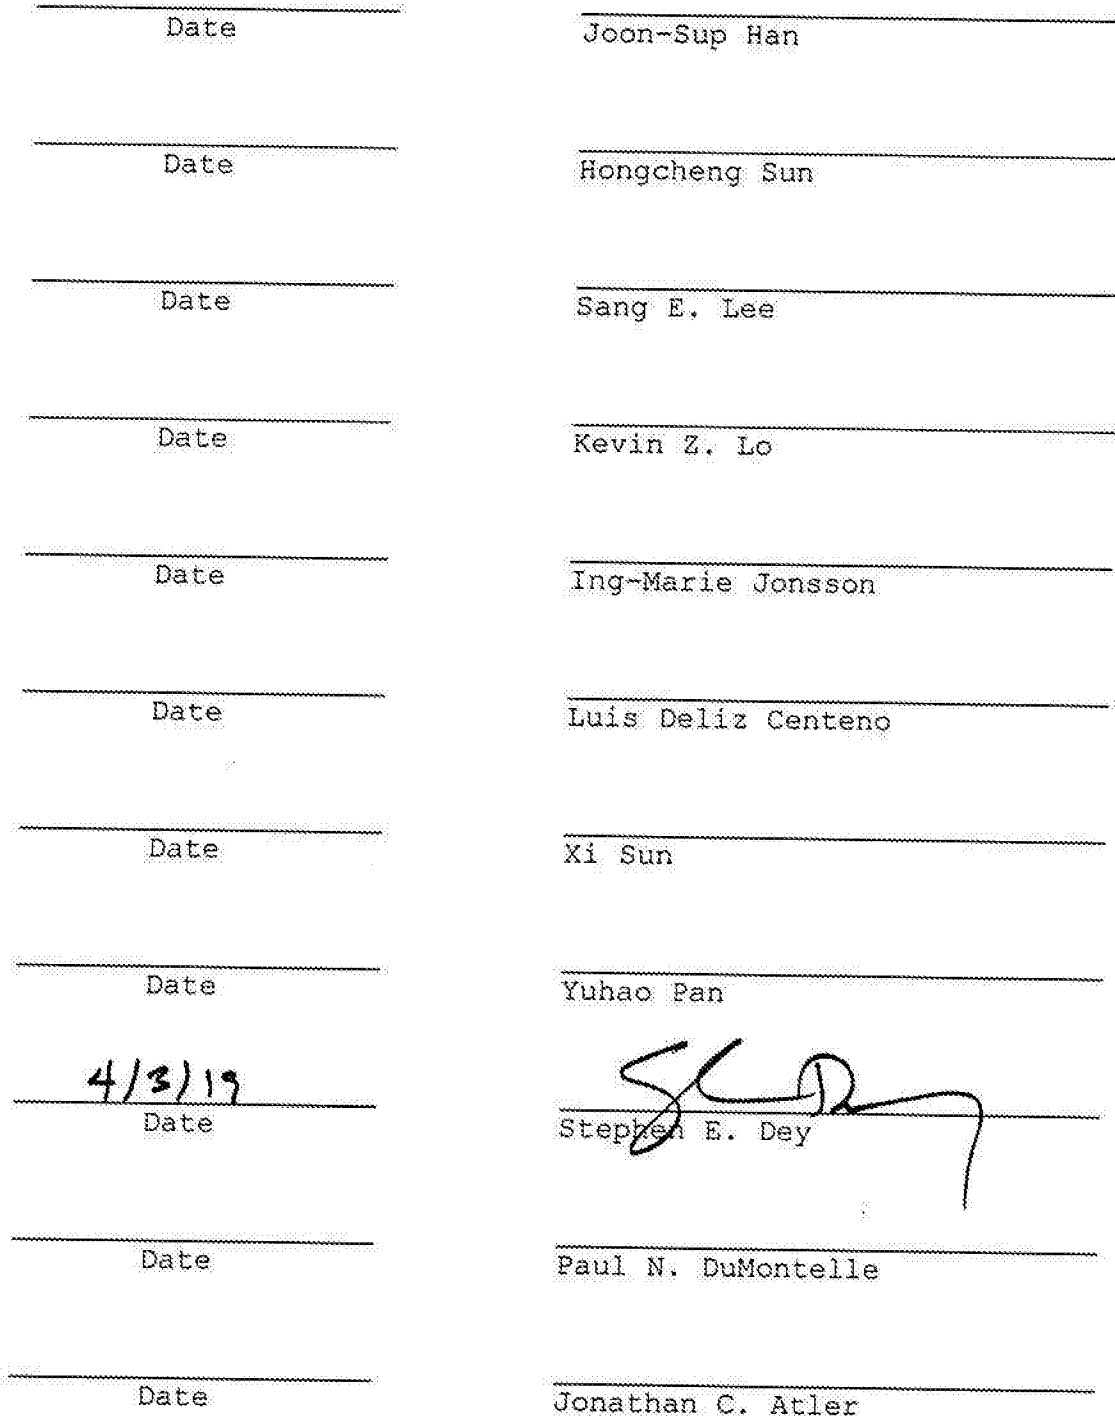 Date Joon-Sup Han
Date Hongcheng Sun
Date Sang E. Lee
Date Kevin Z. Lo
Date Ing-Marie Jonsson
Date Luis Deliz Centeno
Date Xi Sun
Date Yuhao Pan
4/3/19
Date Stephen E. Dey
Date Paul N. DuMontelle
Date Jonathan C. Atler